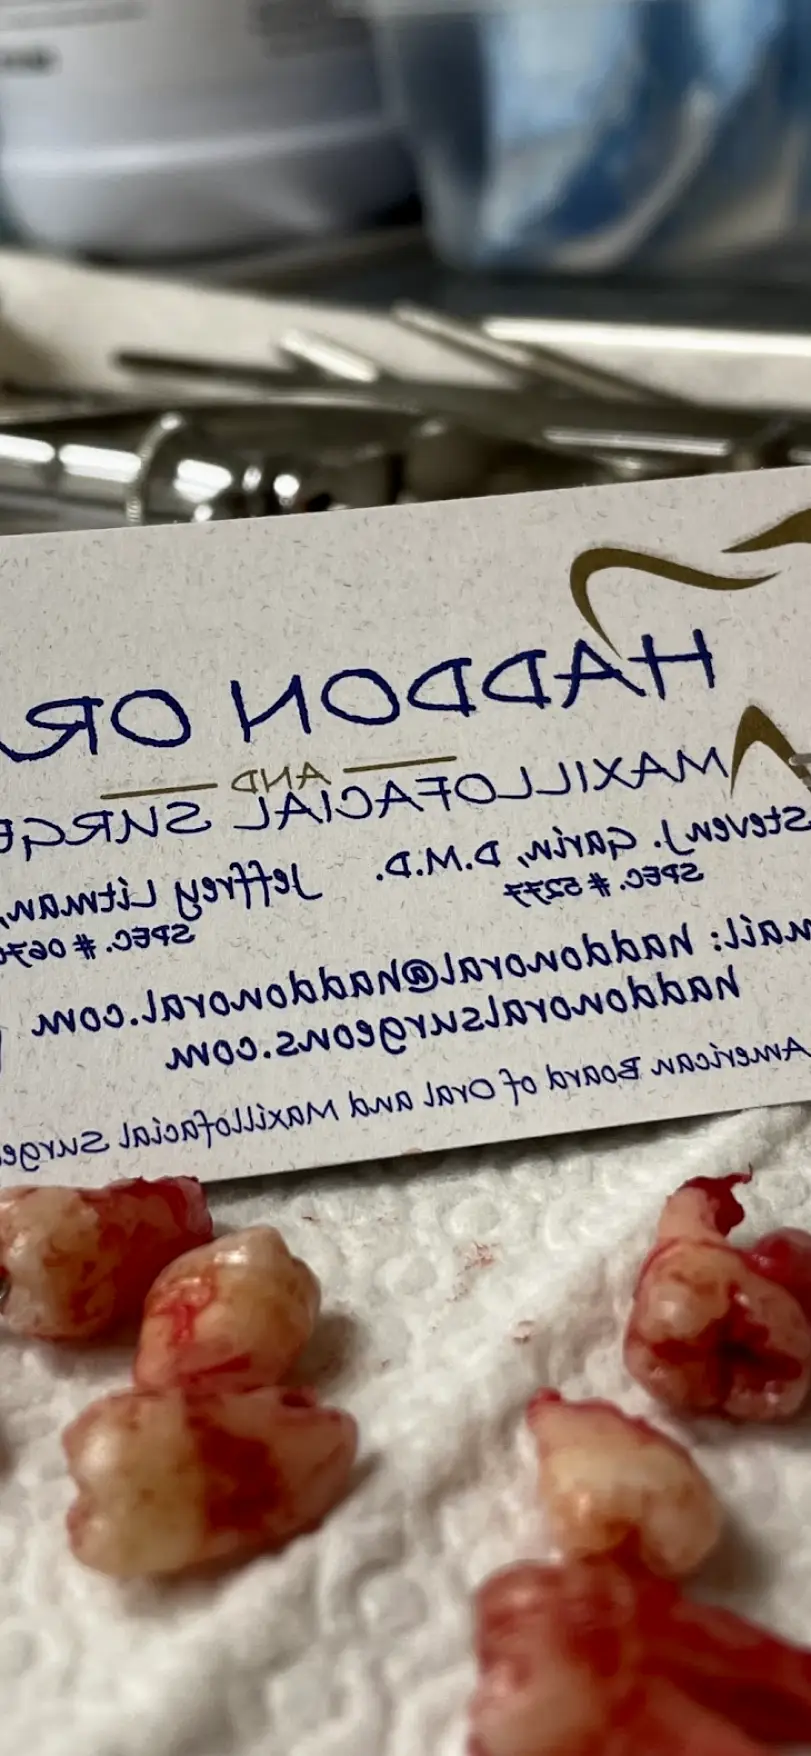 HADDON OR
AND
MAXILLOFACIAL SURGE
Steven J. Garin, D.M.D. Jeffrey Litman,
SPEC. # 5277 SPEC. # 0670
mail: haddonoral@haddonoral.com
haddonoralsurgeons.com
American Board of Oral and Maxillofacial Surge